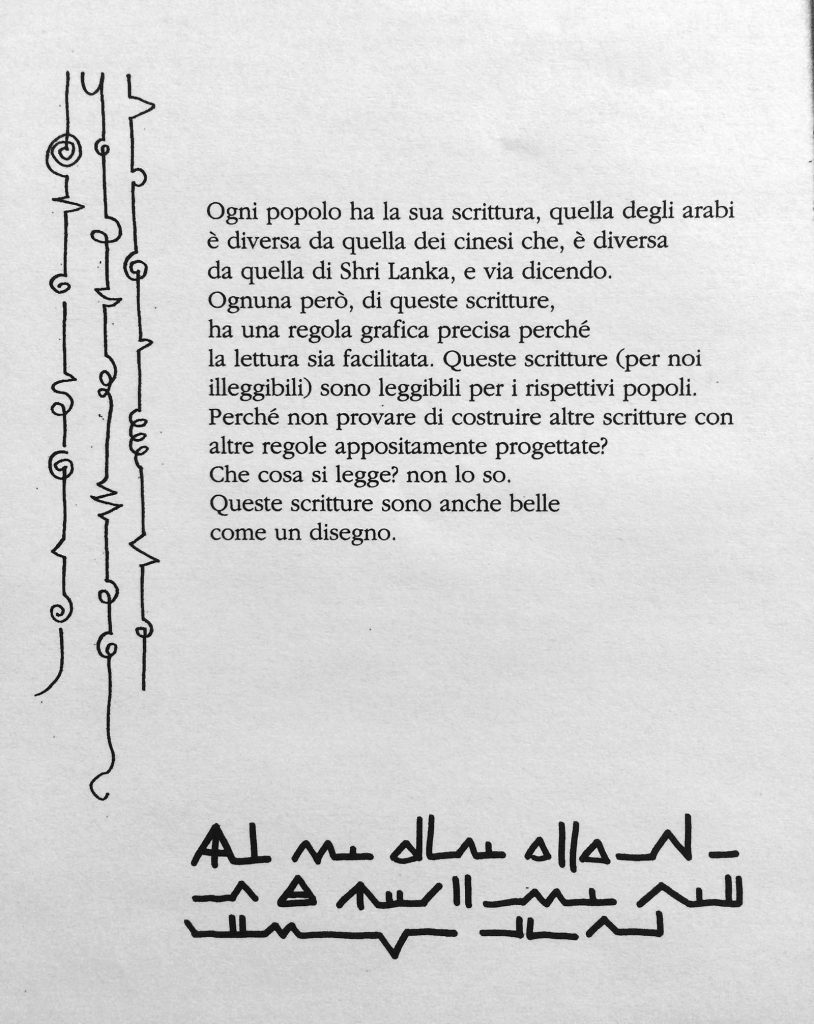 Ogni popolo ha la sua scrittura, quella degli arabi
è diversa da quella dei cinesi che, è diversa
da quella di Shri Lanka, e via dicendo.
Ognuna però, di queste scritture,
ha una regola grafica precisa perché
la lettura sia facilitata. Queste scritture (per noi
illeggibili) sono leggibili per i rispettivi popoli.
Perché non provare di costruire altre scritture con
altre regole appositamente progettate?
Che cosa si legge? non lo so.
Queste scritture sono anche belle
come un disegno.